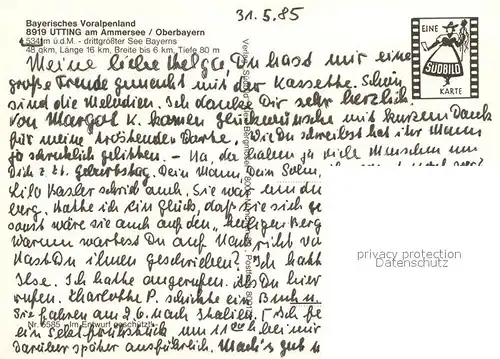 31.5.85
Bayerisches Voralpenland
8919 UTTING am Ammersee / Oberbayern
534 m ü.d.M. - drittgrößter See Bayerns
48 qkm, Länge 16 km, Breite bis 6 km, Tiefe 80 m
EINE
SÜDBILD
KARTE
Meine liebe Helga, Du hast mir eine
große Freude gemacht mit der Kassette. Schön
sind die Melodien. Ich danke Dir sehr herzlich.
Von Margot K. kamen Glückwünsche mit kurzem Dank
für meine tröstenden Worte. Wie Du schreibst hat ihr Mann
ja schrecklich gelitten. - Na, da haben ja viele Menschen um
Dich z. Geburtstag. Dein Mann, Dein Sohn,
schrieb auch. Sie war
berg. Hatte ich ein Glück, daß sie sich
sonst wäre sie auch auf den "heiligen Berg
Warum wartest Du auf Nachricht
Hast Du ihnen geschrieben? Ich hatte
Ilse. Ich hatte angerufen. Du hier
rufen. Charlotte P. schickte ein Buch u.
Sie fahren am 2.6. nach Italien. Ich
ein Sektfrühstück um 11 bei mir
Darüber später ausführlich. Mach's gut
Nr. 6585 Im Entwurf geschützt
privacy protection
Datenschutz